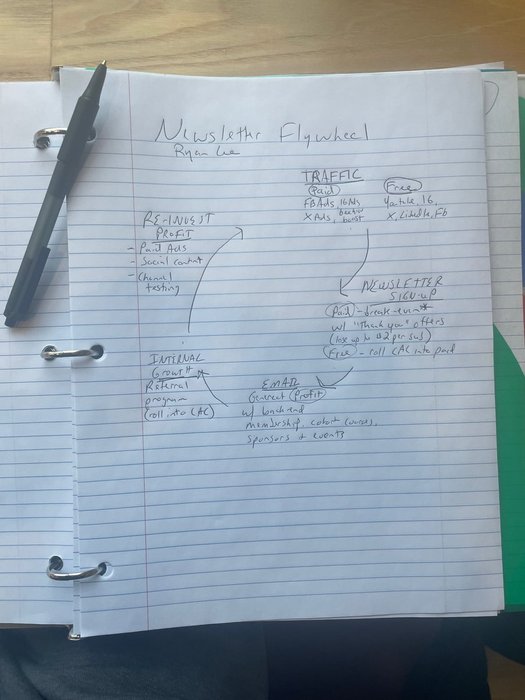 Newsletter Flywheel
Ryan Lee
TRAFFIC
Paid
FB Ads, IG Ads
X Ads, beehiiv boost
Free
Youtube, IG,
X, LinkedIn, FB
NEWSLETTER
SIGN-UP
Paid - break-even*
w/ "Thank you" offers
(lose up to $2 per sub)
Free - roll CAC into paid
EMAIL
Generate Profit
w/ backend
membership, cohort courses,
sponsors & events
INTERNAL
Growth
Referral
program
(roll into CAC)
RE-INVEST
PROFIT
- Paid Ads
- Social content
- Channel
testing